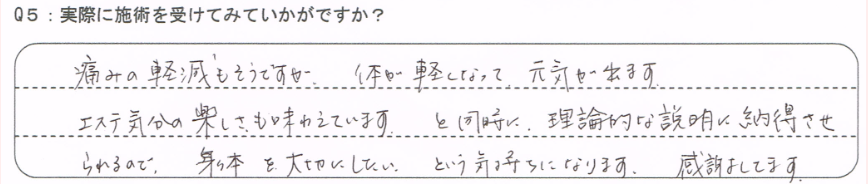 Q5：実際に施術を受けてみていかがですか？
痛みの軽減もそうですが、体が軽くなって、元気が出ます。
エステ気分の楽しさも味わえています。と同時に、理論的な説明に納得させ
られるので、身体を大切にしたい、という気持ちになります。感謝してます。